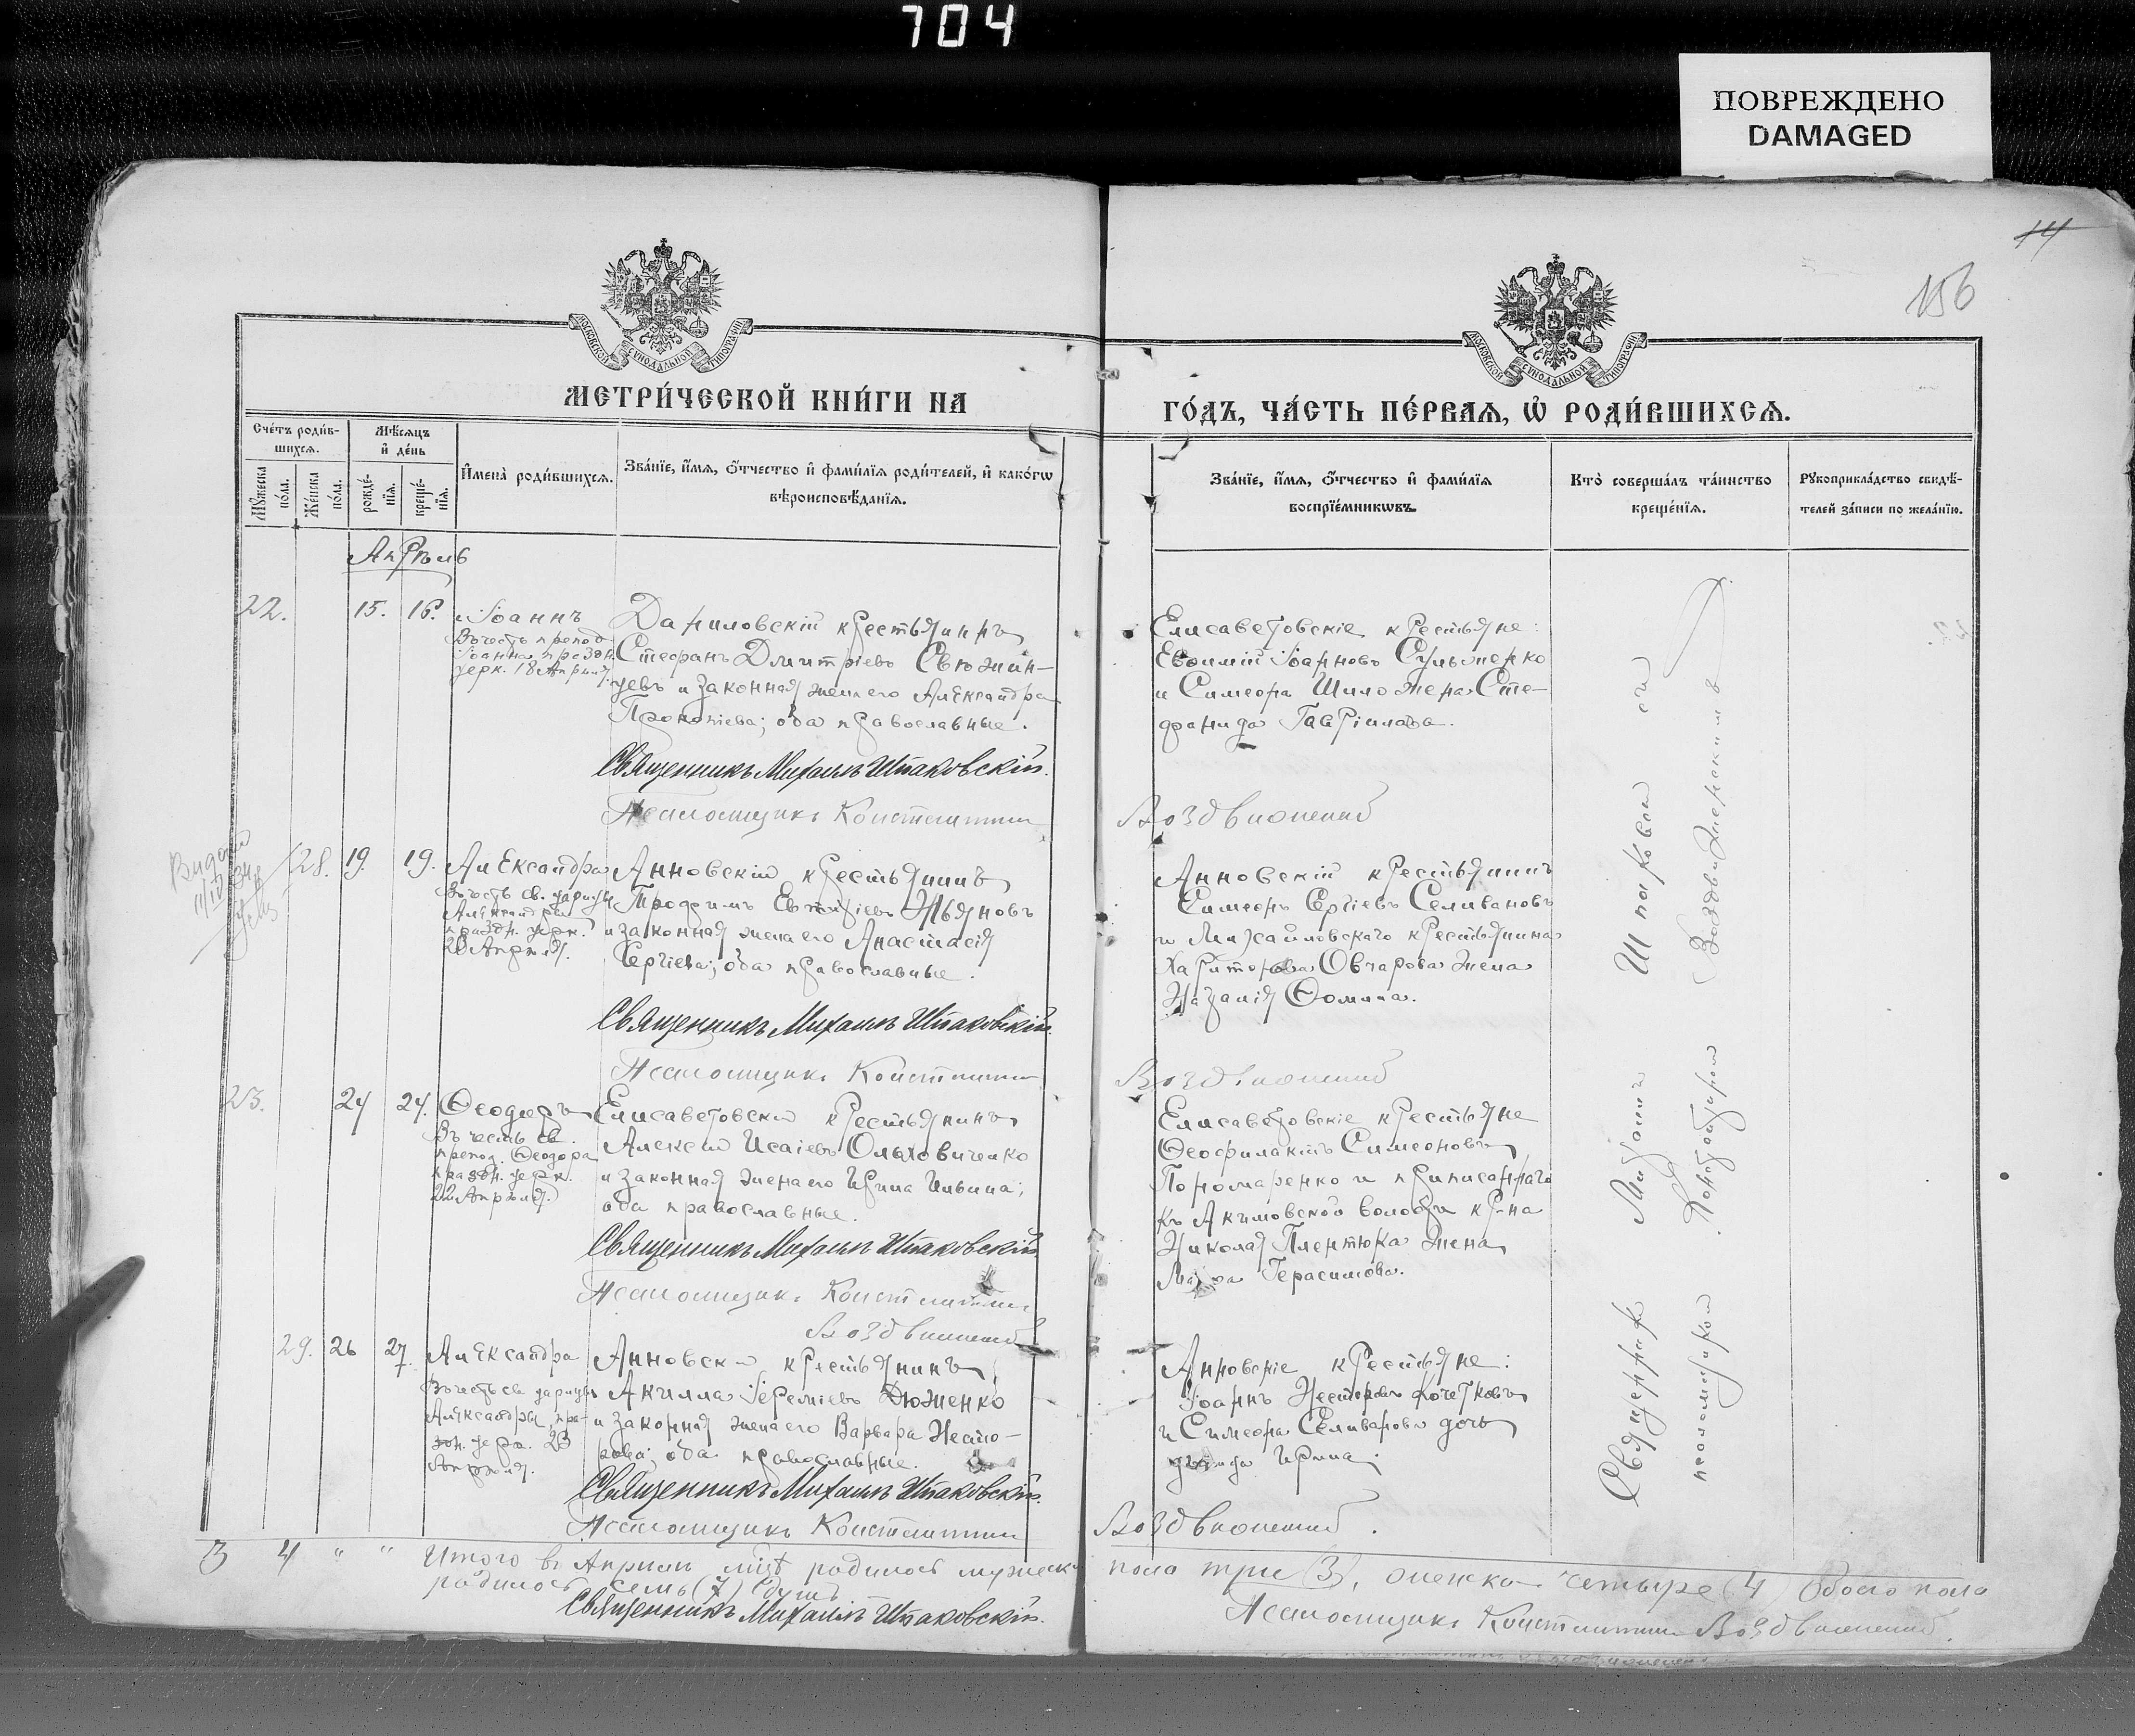 704
ПОВРЕЖДЕНО
DAMAGED
14
156
МОСКОВСКОЙ СѴНОДАЛЬНОЙ ТИПОГРАФІИ
МОСКОВСКОЙ СѴНОДАЛЬНОЙ ТИПОГРАФІИ
МЕТРИ́ЧЕСКОЙ КНИ́ГИ НА
ГО́ДЪ, ЧА́СТЬ ПЕ́РВАѦ, Ѡ҆ РОДИ́ВШИХСѦ.
Сче́тъ роди́в-
шихсѧ.
Мѣ́сѧцъ
и҆ де́нь
Мꙋ́жеска
по́ла.
Же́нска
по́ла.
рожде́-
нїѧ.
креще́-
нїѧ.
И҆мена̀ роди́вшихсѧ.
Зва́нїе, и҆́мѧ, ѻ҆́тчество и҆ фами́лїѧ роди́телей, и҆ како́гѡ
вѣроисповѣ́данїѧ.
Зва́нїе, и҆́мѧ, ѻ҆́тчество и҆ фами́лїѧ
воспрїе́мникѡвъ.
Кто̀ соверша́лъ та́инство
креще́нїѧ.
Рꙋкоприкла́дство свидѣ́-
телей за́писи по жела́нїю.
Апрѣль
22.
15.
16.
Іоаннъ
Въ честь препод.
Іоанна праздн.
церк. 18 Апрѣля.
Даниловскій крестьянинъ
Стефанъ Дмитріевъ Свюжин-
цевъ и законная жена его Александра
Прокопіева; оба православные.
Священникъ Михаилъ Шпаковскій.
Псаломщикъ Константинъ
Елисаветовскіе крестьяне:
Евѳимій Іоанновъ Сульженко
и Симеона Шило жена Сте-
фанида Гавріилова.
Воздвиженскій
28.
19.
19.
Александра
Въ честь св. царицы
Александры
праздн. церк.
23 Апрѣля.
Анновскій крестьянинъ
Трофимъ
и законная жена его Анастасія
Сергіева; оба православные.
Священникъ Михаилъ Шпаковскій.
Псаломщикъ Константинъ
Анновскій крестьянинъ
Симеонъ Сергіевъ Селивановъ
и Михайловскаго крестьянина
Харитона Овчарова жена
Наталія Ѳомина.
Воздвиженскій
23.
24
24.
Ѳеодоръ
Въ честь св.
препод. Ѳеодора
праздн. церк.
22 Апрѣля.
Елисаветовскій крестьянинъ
Алексій Исаіевъ Ольховиченко
и законная жена его Ирина Ильина;
оба православные.
Священникъ Михаилъ Шпаковскій
Псаломщикъ Константинъ
Воздвиженскій
Елисаветовскіе крестьяне
Ѳеофилактъ Симеоновъ
Пономаренко и приписаннаго
къ Акимовской волости кр-на
Николая Плентюка жена
Герасимова.
29.
26
27.
Александра
Въ честь св царицы
Александры, пра-
здн. церк. 23
Апрѣля.
Анновскій крестьянинъ
Акилла Іереміевъ Дюженко
и законная жена его Варвара Несто-
рова; оба православные.
Священникъ Михаилъ Шпаковскій.
Псаломщикъ Константинъ
Анновскіе крестьяне:
Іоаннъ Несторовъ Кочетковъ
и Симеона Селиванова дочь
дѣвица Ирина.
Воздвиженскій.
Священникъ Михаилъ Шпаковскій
псаломщикомъ Воздвиженскимъ
3 4 " " Итого въ Апрѣлѣ мцѣ родилось мужеск. пола три (3), женска четыре (4) обоего пола
родилось семь (7) душъ
Священникъ Михаилъ Шпаковскій.
Псаломщикъ Константинъ Воздвиженскій.